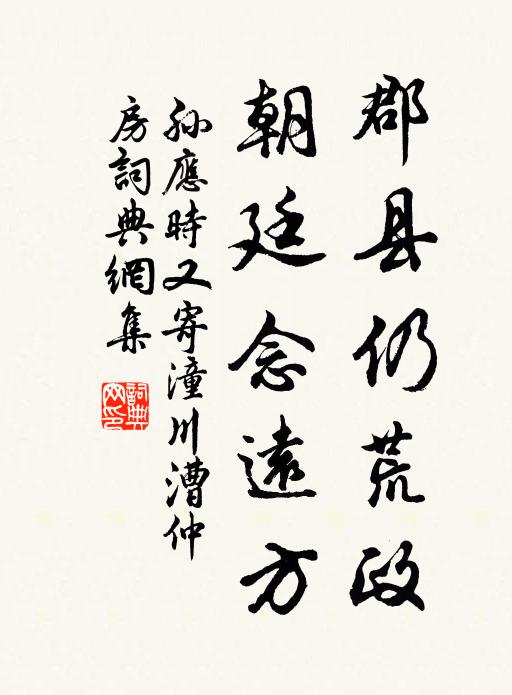 郡县仍荒政
朝廷念遠方
孙應時又寄潼川漕仲
房詞典網集
詞典網印